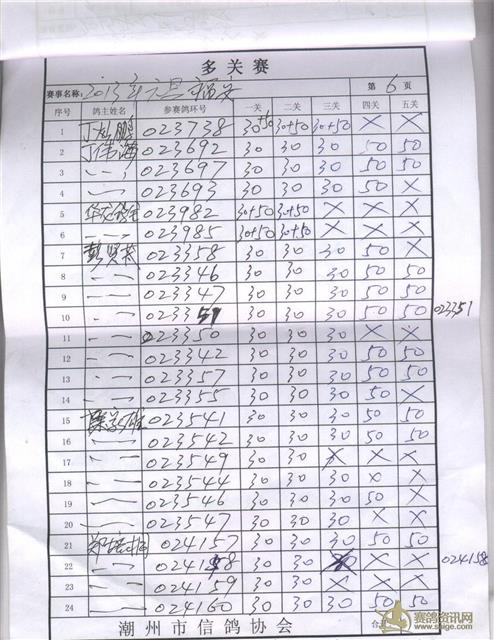 多关赛
赛事名称: 2013年元旦 福安 第 6 页
序号 鸽主姓名 参赛鸽环号 一关 二关 三关 四关 五关
1 鹏 023738 30+50 30+50 30+50 × ×
2 丁伟海 023692 30 30 30 50 50
3 〃 023697 30 30 30 50 50
4 〃 023693 30 30 30 50 ×
5 023982 30+50 30+50 × × ×
6 〃 023985 30+50 30+50 × × ×
7 彭贤 023358 30 30 30 50 ×
8 〃 023346 30 30 30 50 50
9 〃 023347 30 30 30 50 50
10 〃 023351 30 30 30 50 50 023351
11 〃 023350 30 30 30 × ×
12 〃 023342 30 30 30 50 50
13 〃 023357 30 30 30 50 50
14 〃 023355 30 30 30 50 ×
15 023541 30 30 30 50 50
16 〃 023542 30 30 30 50 50
17 〃 023549 30 30 × × ×
18 〃 023544 30 30 30 × ×
19 〃 023546 30 30 30 50 ×
20 〃 023547 30 30 30 × ×
21 郑培 024157 30 30 30 50 50
22 〃 024158 30 30 × × 024158
23 〃 024159 30 30 × × ×
24 〃 024160 30 30 30 50 50
潮州市信鸽协会
赛鸽资讯网
www.saige.com